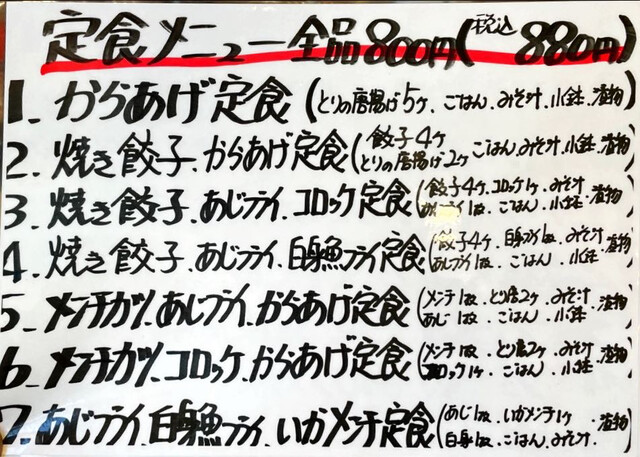 定食メニュー全品800円(税込 880円)
1. からあげ定食(とりの唐揚げ5ヶ、ごはん、みそ汁、小鉢、漬物)
2. 焼き餃子、からあげ定食(餃子4ヶ とりの唐揚げ2ヶ ごはん、みそ汁、小鉢、漬物)
3. 焼き餃子、あじフライ、コロッケ定食(餃子4ヶ、コロッケ1ヶ、みそ汁 あじフライ1枚、ごはん、小鉢、漬物)
4. 焼き餃子、あじフライ、白身魚フライ定食(餃子4ヶ、白身フライ1枚、みそ汁 あじフライ1枚、ごはん、小鉢、漬物)
5. メンチカツ、あじフライ、からあげ定食(メンチ1枚、とり唐2ヶ、みそ汁 あじ1枚、ごはん、小鉢、漬物)
6. メンチカツ、コロッケ、からあげ定食(メンチ1枚、とり唐2ヶ、みそ汁 コロッケ1ヶ、ごはん、小鉢、漬物)
7. あじフライ、白身魚フライ、いかメンチ定食(あじ1枚、いかメンチ1ヶ 白身1枚、ごはん、みそ汁、漬物)